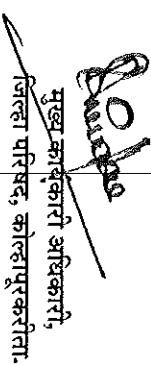 मुख्य कार्यकारी अधिकारी,
जिल्हा परिषद, कोल्हापूरकरीता.